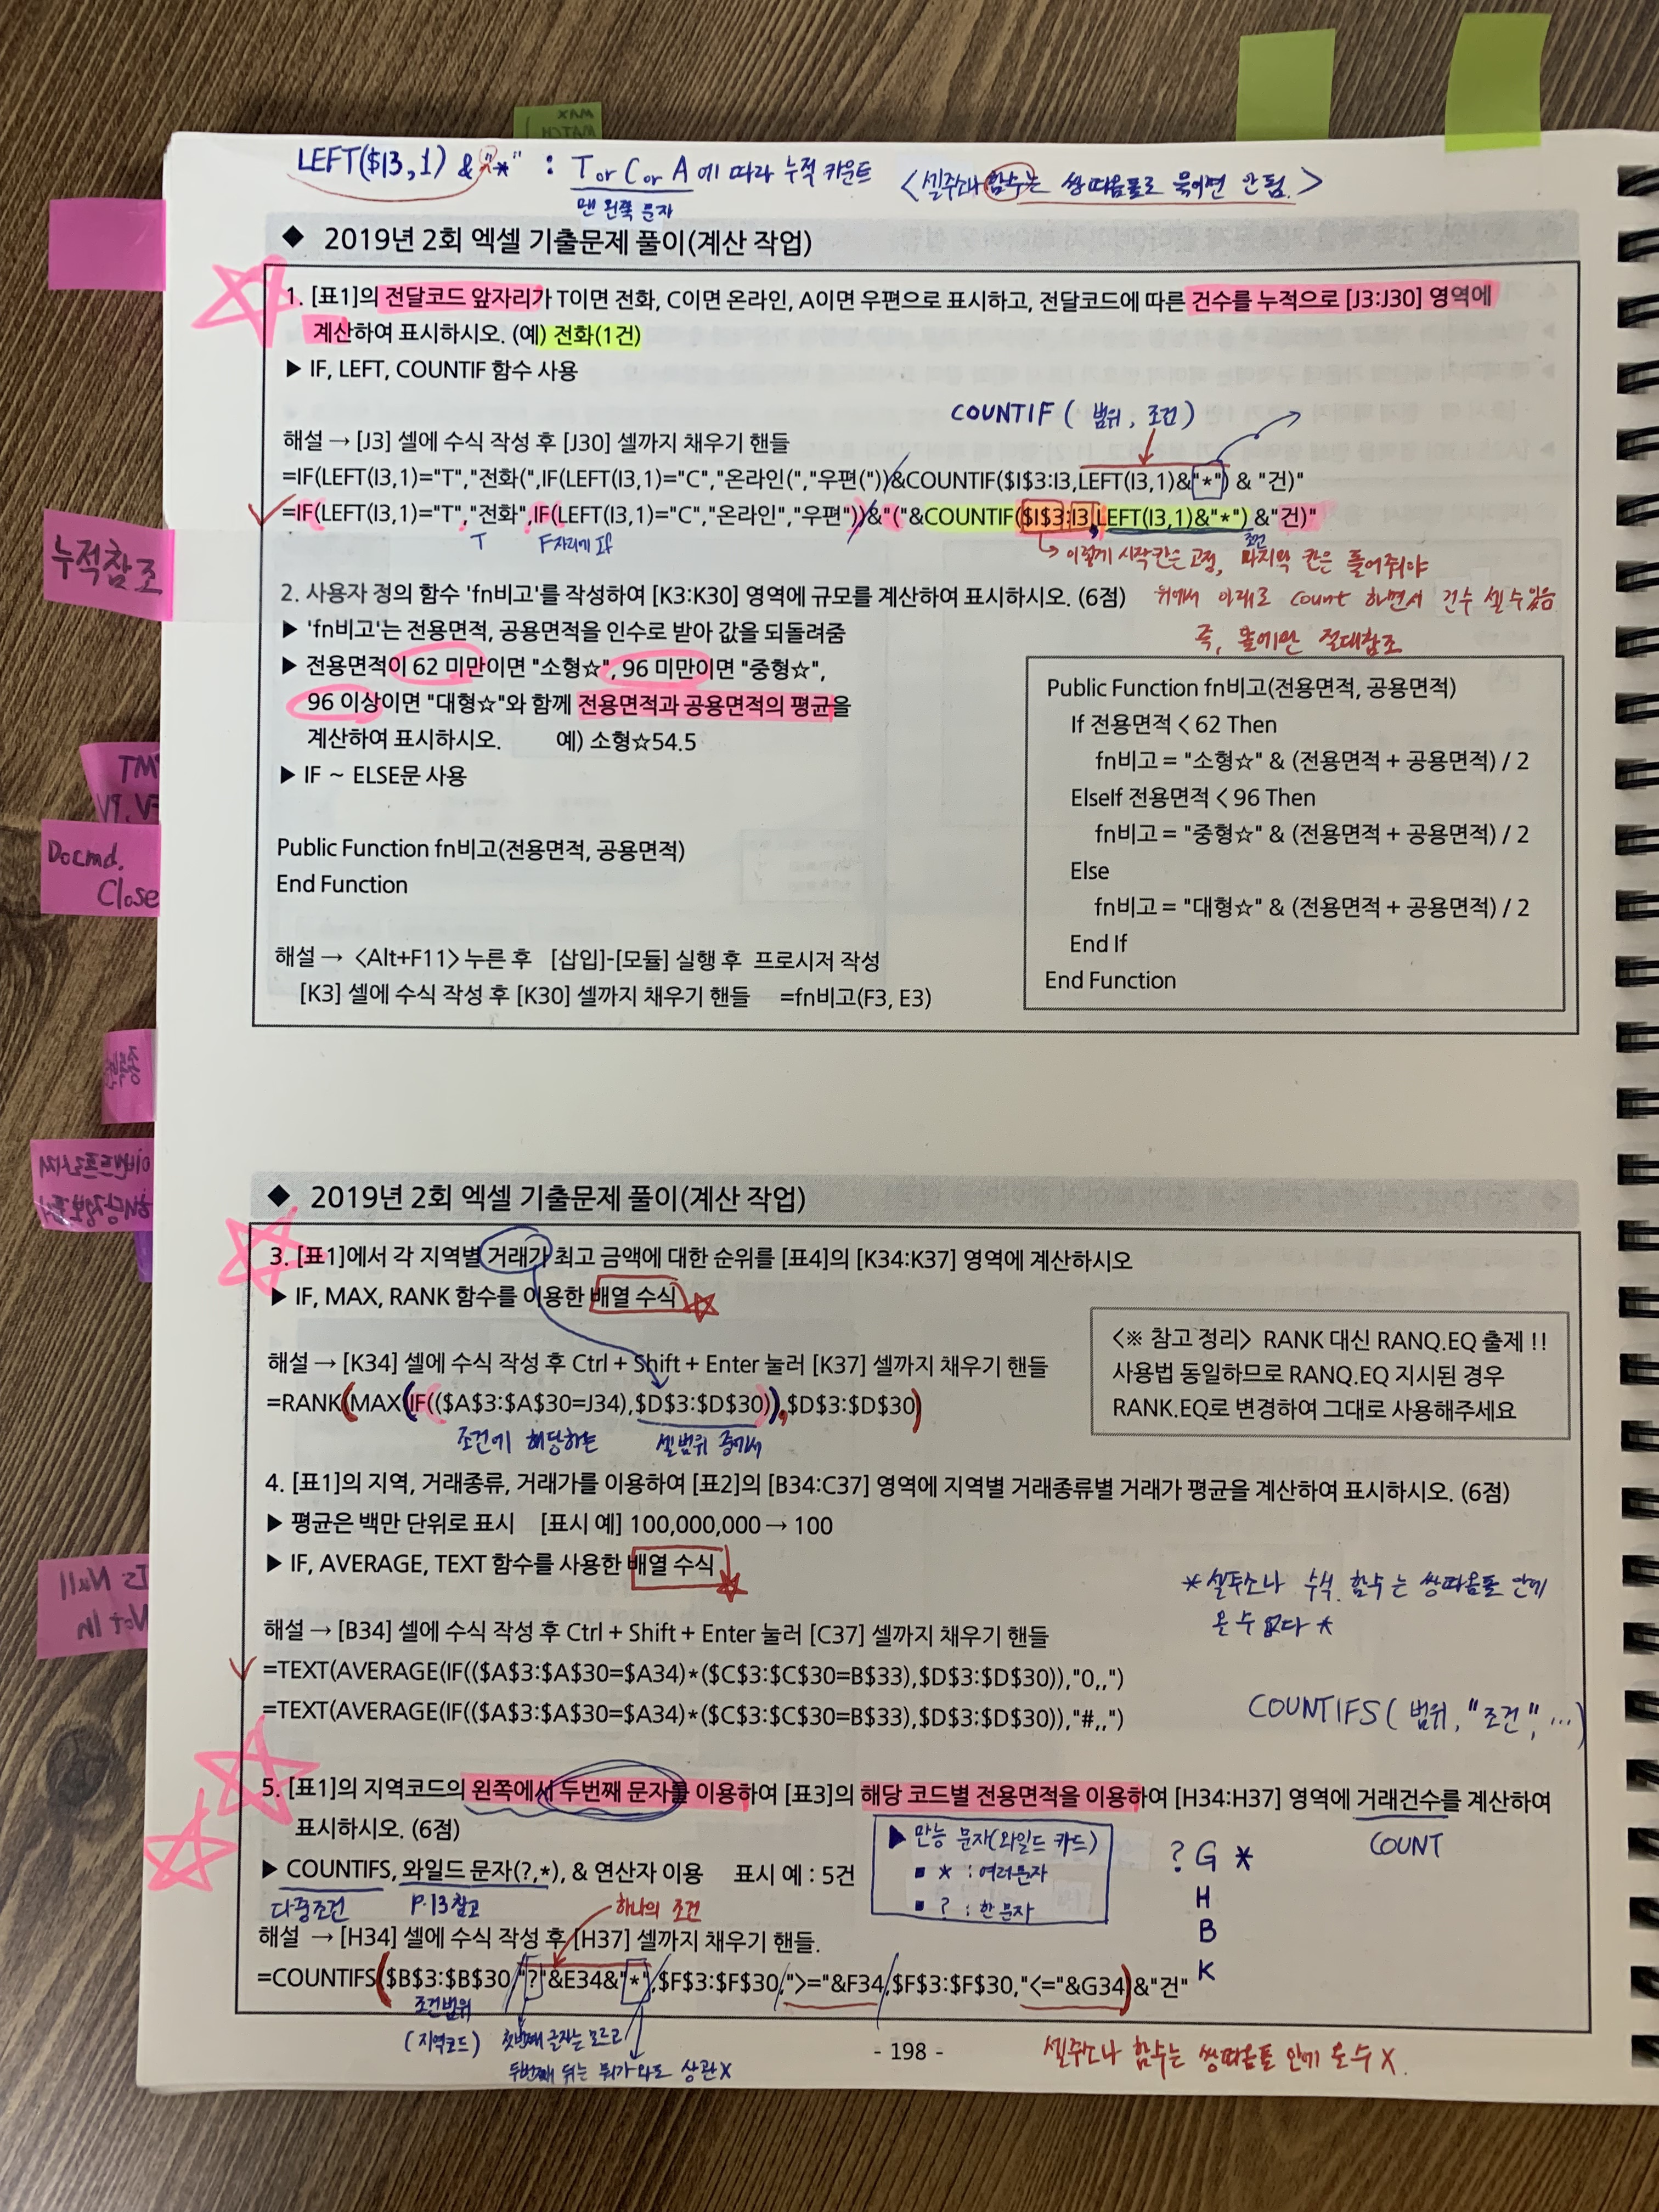 MAX
MATCH
LEFT($I3,1) & "*" : T or C or A 에 따라 누적 카운트 <셀주소나 함수는 쌍따옴표로 묶이면 안됨.>
맨 왼쪽 문자
◆ 2019년 2회 엑셀 기출문제 풀이(계산 작업)
1. [표1]의 전달코드 앞자리가 T이면 전화, C이면 온라인, A이면 우편으로 표시하고, 전달코드에 따른 건수를 누적으로 [J3:J30] 영역에
계산하여 표시하시오. (예) 전화(1건)
▶ IF, LEFT, COUNTIF 함수 사용
COUNTIF ( 범위, 조건 )
해설 → [J3] 셀에 수식 작성 후 [J30] 셀까지 채우기 핸들
=IF(LEFT(I3,1)="T","전화(",IF(LEFT(I3,1)="C","온라인(","우편("))&COUNTIF($I$3:I3,LEFT(I3,1)&"*") & "건)"
=IF(LEFT(I3,1)="T","전화",IF(LEFT(I3,1)="C","온라인","우편"))&"("&COUNTIF($I$3:I3,LEFT(I3,1)&"*") &"건)"
T
F자리에 If
조건
이렇게 시작칸은 고정, 마지막 칸은 풀어줘야
위에서 아래로 count 하면서 건수 셀 수 있음
즉, 앞에만 절대참조
누적참조
2. 사용자 정의 함수 'fn비고'를 작성하여 [K3:K30] 영역에 규모를 계산하여 표시하시오. (6점)
▶ 'fn비고'는 전용면적, 공용면적을 인수로 받아 값을 되돌려줌
▶ 전용면적이 62 미만이면 "소형☆", 96 미만이면 "중형☆",
96 이상이면 "대형☆"와 함께 전용면적과 공용면적의 평균을
계산하여 표시하시오. 예) 소형☆54.5
▶ IF ~ ELSE문 사용
Public Function fn비고(전용면적, 공용면적)
End Function
해설 → <Alt+F11> 누른 후 [삽입]-[모듈] 실행 후 프로시저 작성
[K3] 셀에 수식 작성 후 [K30] 셀까지 채우기 핸들 =fn비고(F3, E3)
Public Function fn비고(전용면적, 공용면적)
If 전용면적 < 62 Then
fn비고 = "소형☆" & (전용면적 + 공용면적) / 2
ElseIf 전용면적 < 96 Then
fn비고 = "중형☆" & (전용면적 + 공용면적) / 2
Else
fn비고 = "대형☆" & (전용면적 + 공용면적) / 2
End If
End Function
Docmd.
Close
◆ 2019년 2회 엑셀 기출문제 풀이(계산 작업)
3. [표1]에서 각 지역별 거래가 최고 금액에 대한 순위를 [표4]의 [K34:K37] 영역에 계산하시오
▶ IF, MAX, RANK 함수를 이용한 배열 수식
해설 → [K34] 셀에 수식 작성 후 Ctrl + Shift + Enter 눌러 [K37] 셀까지 채우기 핸들
=RANK(MAX(IF(($A$3:$A$30=J34),$D$3:$D$30)),$D$3:$D$30)
조건에 해당하는 셀범위 중에서
<※ 참고 정리> RANK 대신 RANQ.EQ 출제 !!
사용법 동일하므로 RANQ.EQ 지시된 경우
RANK.EQ로 변경하여 그대로 사용해주세요
4. [표1]의 지역, 거래종류, 거래가를 이용하여 [표2]의 [B34:C37] 영역에 지역별 거래종류별 거래가 평균을 계산하여 표시하시오. (6점)
▶ 평균은 백만 단위로 표시 [표시 예] 100,000,000 → 100
▶ IF, AVERAGE, TEXT 함수를 사용한 배열 수식
*셀주소나 수식 함수는 쌍따옴표 안에
올 수 없다 *
해설 → [B34] 셀에 수식 작성 후 Ctrl + Shift + Enter 눌러 [C37] 셀까지 채우기 핸들
=TEXT(AVERAGE(IF(($A$3:$A$30=$A34)*($C$3:$C$30=B$33),$D$3:$D$30)),"0,,")
=TEXT(AVERAGE(IF(($A$3:$A$30=$A34)*($C$3:$C$30=B$33),$D$3:$D$30)),"#,,")
COUNTIFS ( 범위, "조건", ...)
Is Null
Not In
5. [표1]의 지역코드의 왼쪽에서 두번째 문자를 이용하여 [표3]의 해당 코드별 전용면적을 이용하여 [H34:H37] 영역에 거래건수를 계산하여
표시하시오. (6점)
COUNT
▶ COUNTIFS, 와일드 문자(?,*), & 연산자 이용 표시 예 : 5건
다중조건 P.13참고
▶ 만능 문자(와일드 카드)
▪ * : 여러문자
▪ ? : 한 문자
? G *
H
B
K
하나의 조건
해설 → [H34] 셀에 수식 작성 후 [H37] 셀까지 채우기 핸들.
=COUNTIFS($B$3:$B$30,"?"&E34&"*",$F$3:$F$30,">="&F34,$F$3:$F$30,"<="&G34)&"건"
조건범위
(지역코드)
첫번째 글자는 모르고
두번째 뒤는 뭐가 와도 상관X
- 198 -
셀주소나 함수는 쌍따옴표 안에 올 수 X.